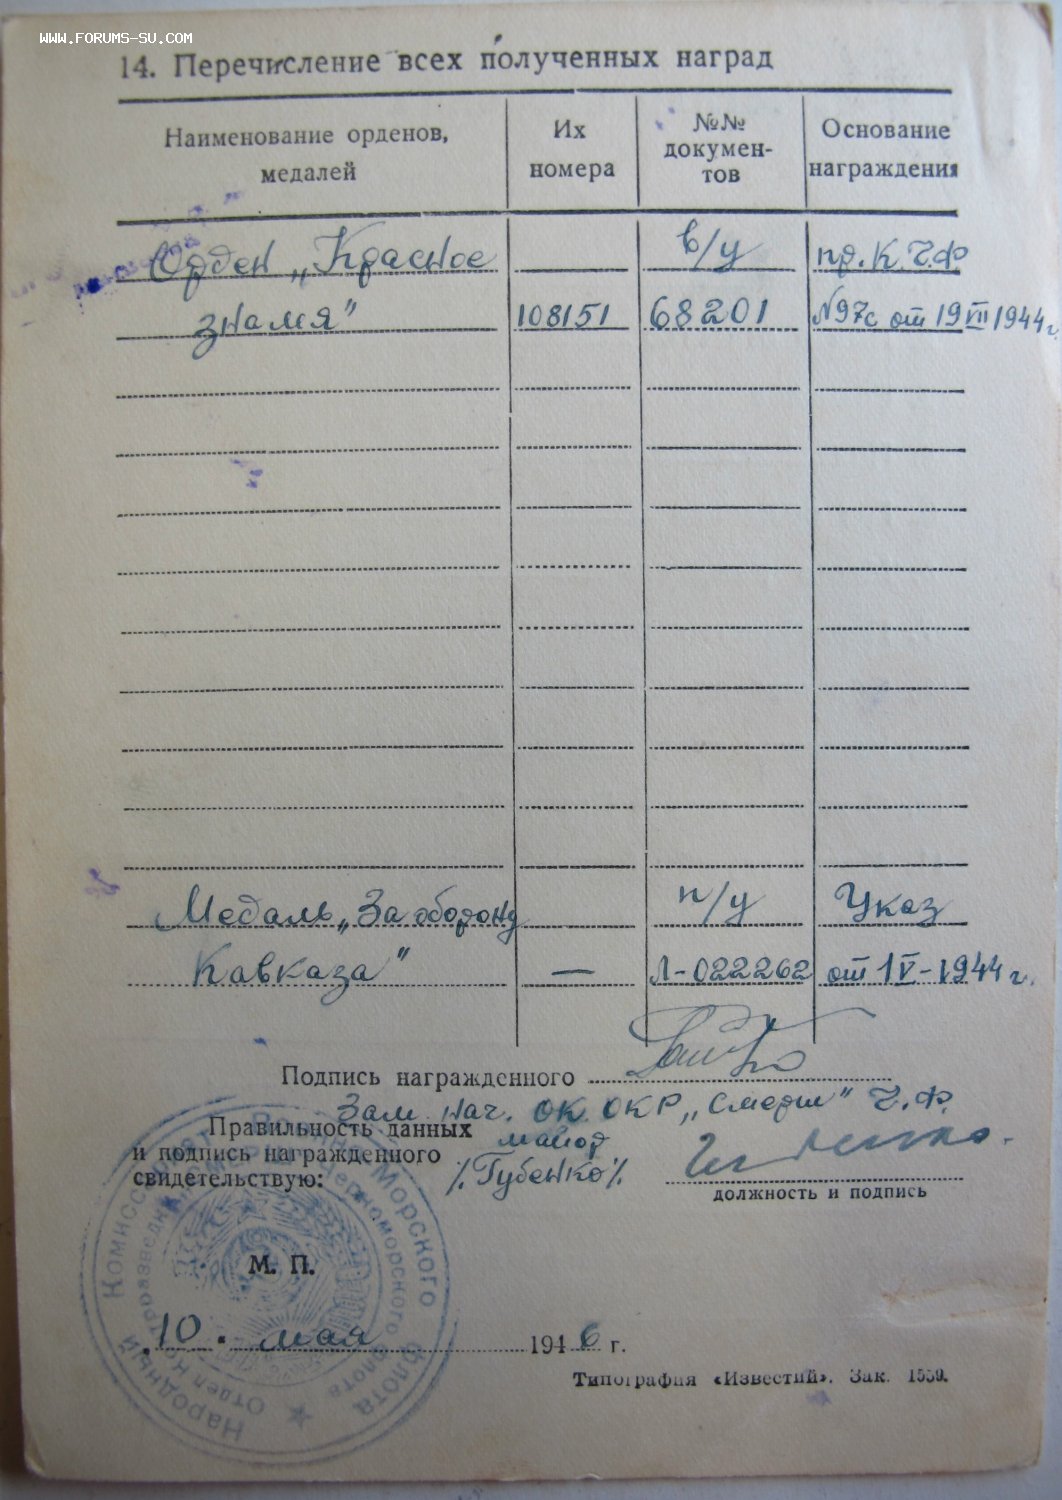 WWW.FORUMS-SU.COM
14. Перечисление всех полученных наград
Наименование орденов, медалей
Их номера
№№ докумен-тов
Основание награждения
Орден „Красное
в/у
пр. К.Ч.Ф
знамя"
108151
68201
№97с от 19 VII 1944 г.
Медаль „За оборону
п/у
Указ
Кавказа"
—
Л-022262
от 1 V-1944 г.
Подпись награжденного
Зам. нач. ОК. ОКР „Смерш" Ч.Ф.
Правильность данных
майор
и подпись награжденного
свидетельствую:
/. Губенко ./.
должность и подпись
М. П.
10. мая 1946 г.
Типография «Известий». Зак. 1559.
Народный Комиссариат Военно Морского Флота
Отдел Контрразведки Смерш Черноморского флота